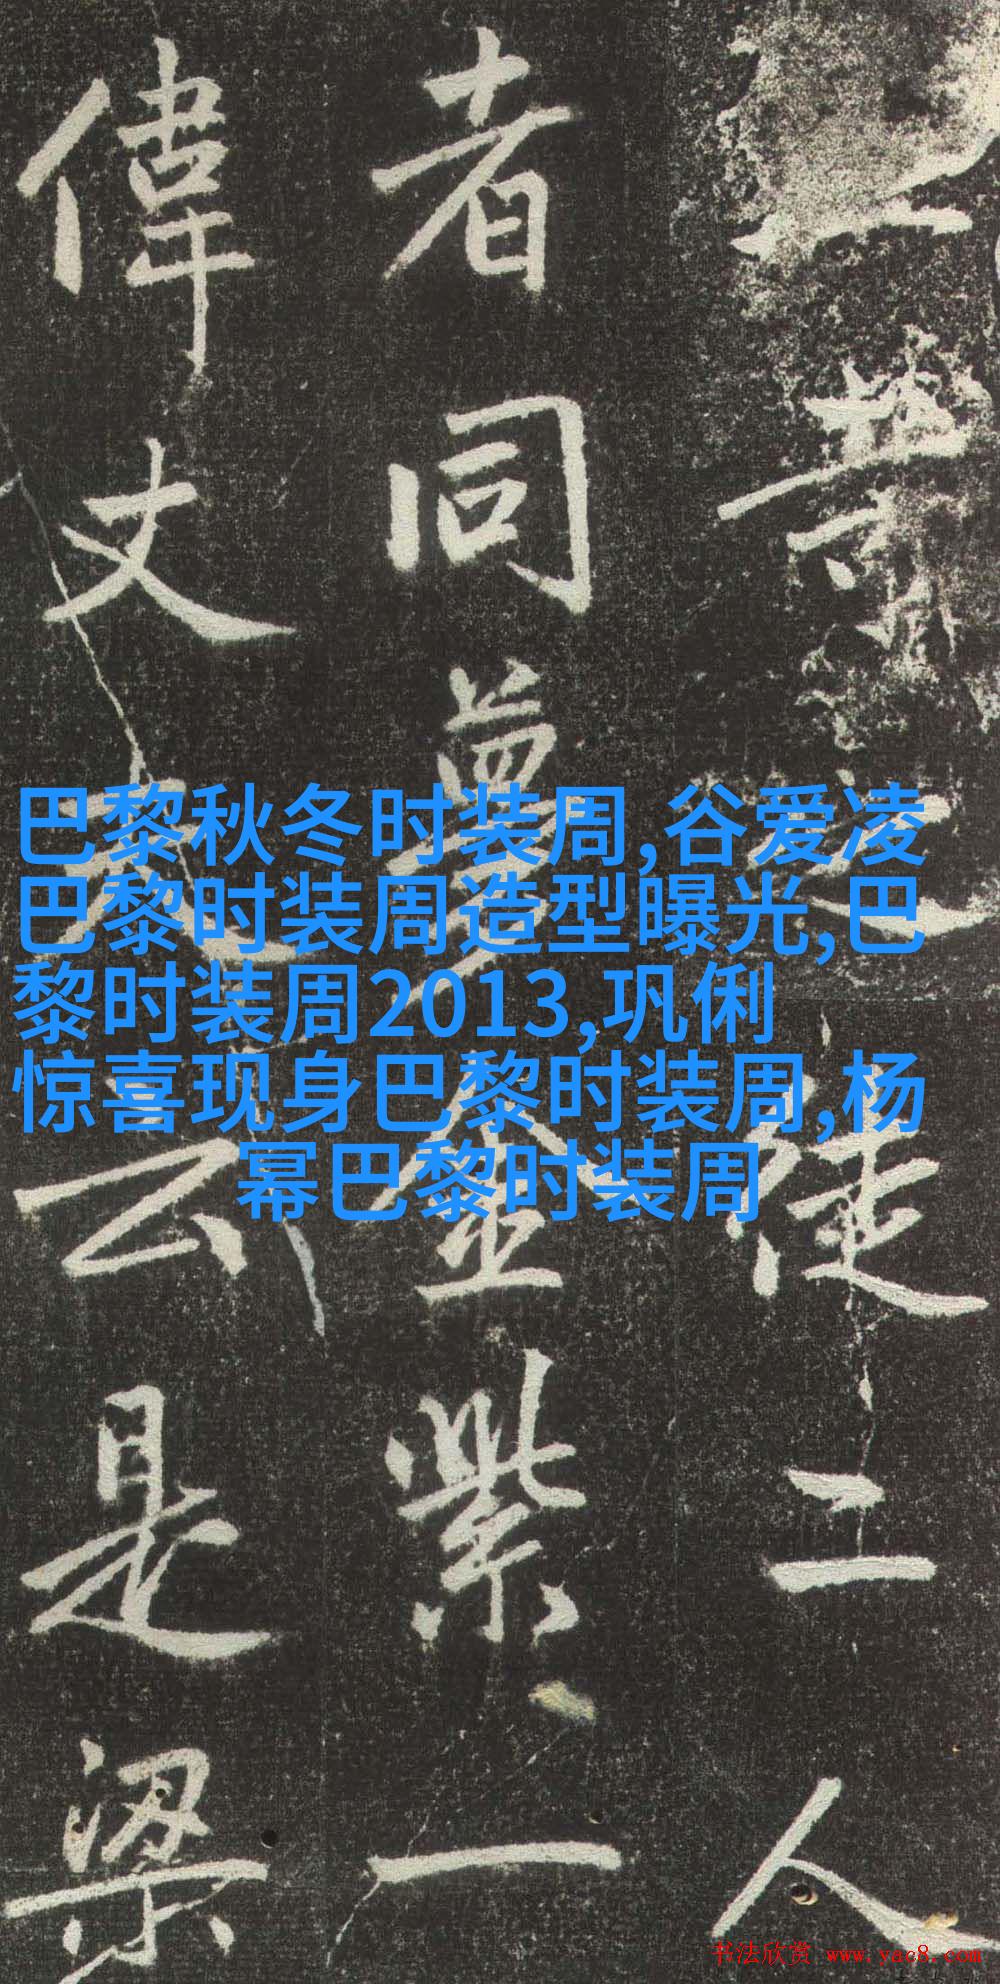 業之徒二人
者同夢金紫一
偉丈夫云是梁
巴黎秋冬时装周,谷爱凌
巴黎时装周造型曝光,巴
黎时装周2013,巩俐
惊喜现身巴黎时装周,杨
幂巴黎时装周
书法欣赏 www.yac8.com